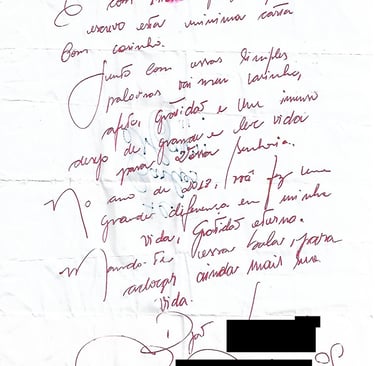 É com
escrevo esta minima carta
Com carinho.
Junto com essas simples
palavras vai meu carinho,
afeto, Gratidão e um imenso
desejo de grande e leve vida
para Vossa Senhoria.
No ano de 2018, vsã fez uma
grande diferença em minha
vida, Gratidão eterna.
Mando-te essas balas, para
adoçar ainda mais sua
vida.